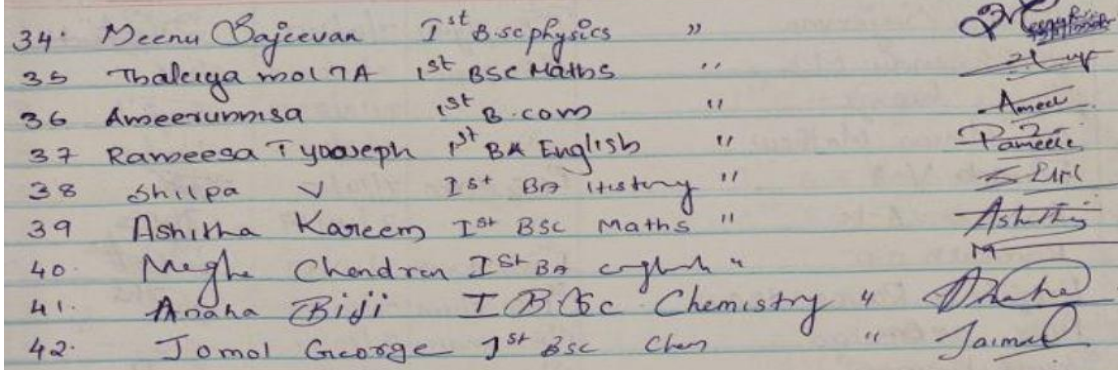 34. Meenu Sajeevan Ist B.sc physics "
35 Thaleya mol T A 1st BSC Maths "
36 Ameerunnisa 1st B.com " Ameer
37 Rameesa 1st BA English " Rameele
38 Shilpa V Ist BA History "
39 Ashitha Kareem Ist BSC Maths " Ashitha
40. Megha Chandran Ist BA english " M
41. Anaha Biji I BSc Chemistry " Anaha
42. Jomol George 1st BSC Chem "